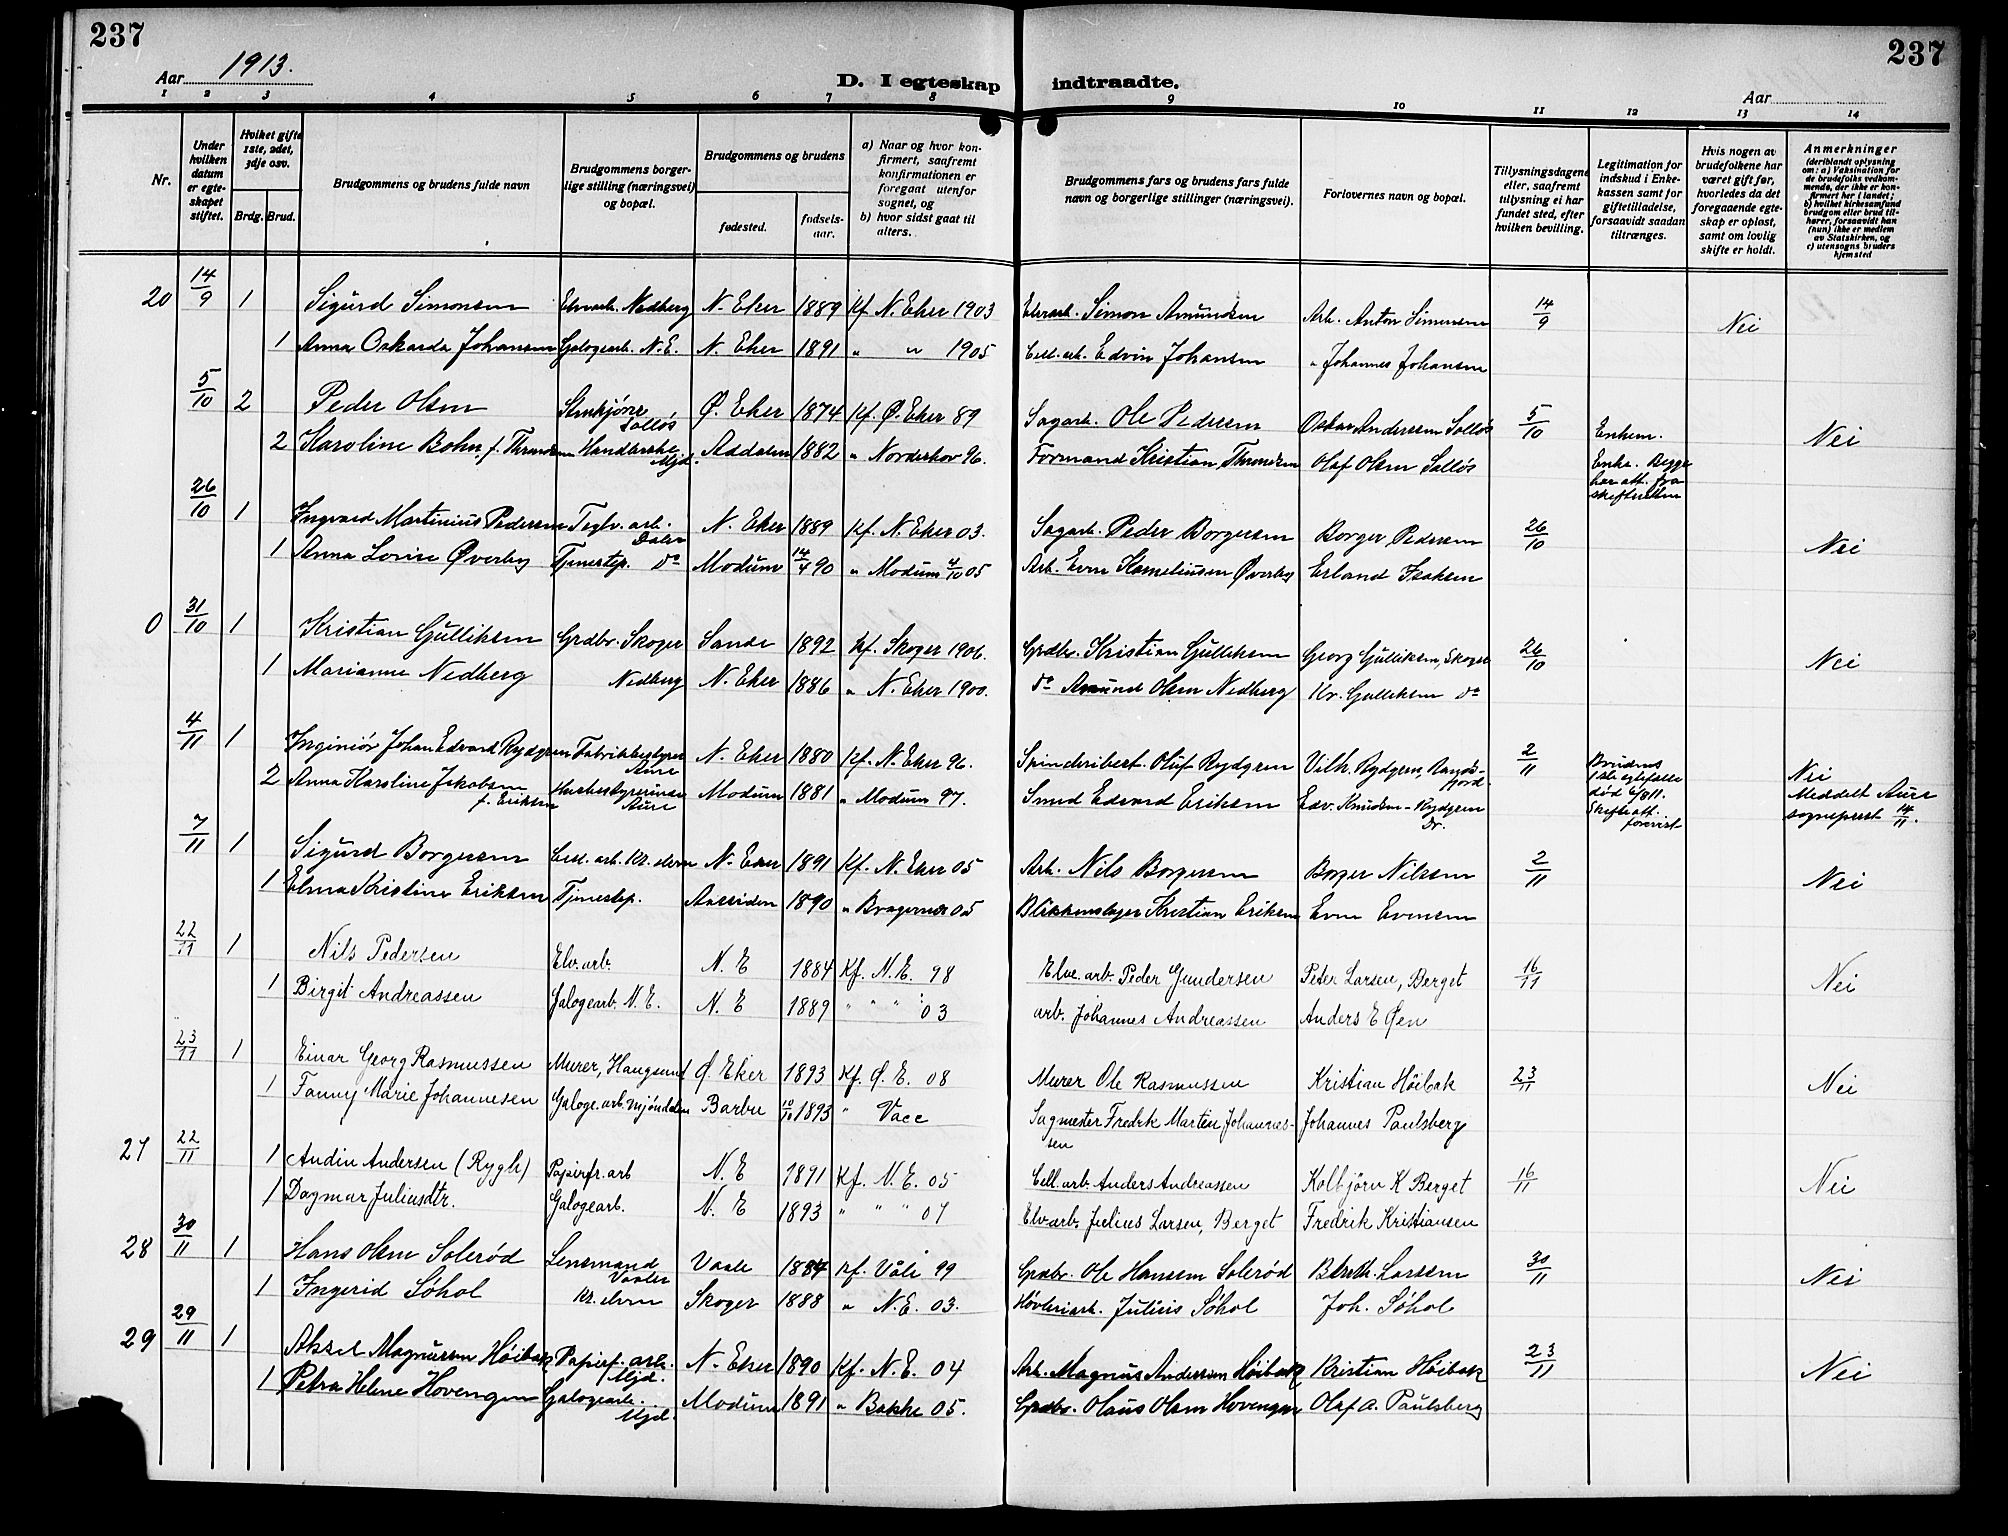 237
237
Aar 1913.
D. I egteskap indtraadte.
Aar
1 2 3 4 5 6 7 8 9 10 11 12 13 14
Nr.
Under hvilken datum er egteskapet stiftet.
Hvilket gifte 1ste, 2det, 3dje osv.
Brdg. Brud.
Brudgommens og brudens fulde navn
Brudgommens borgerlige stilling (næringsvei) og bopæl.
Brudgommens og brudens
fødested.
fødselsaar.
a) Naar og hvor konfirmert, saafremt konfirmationen er foregaat utenfor sognet, og
b) hvor sidst gaat til alters.
Brudgommens fars og brudens fars fulde navn og borgerlige stillinger (næringsvei).
Forlovernes navn og bopæl.
Tillysningsdagene eller, saafremt tillysning ei har fundet sted, efter hvilken bevilling.
Legitimation for indskud i Enkekassen samt for giftetilladelse, forsaavidt saadan tiltrænges.
Hvis nogen av brudefolkene har været gift før, hvorledes da det foregaaende egteskap er opløst, samt om lovlig skifte er holdt.
Anmerkninger
(deriblandt oplysning om: a) Vaksination for de brudefolks vedkommende, der ikke er konfirmert her i landet; b) hvilket kirkesamfund brudgom eller brud tilhører, forsaavidt han (hun) ikke er medlem av Statskirken, og c) utensogns bruders hjemsted
20 14/9 1 Sigurd Simonsen Elvearb. Nedberg N. Eker 1889 Kf. N. Eker 1903 Elvearb. Simon Amundsen Arb. Anton Simensen 14/9 Nei
1 Anna Oskarda Johansen Galogearb. N.E. N. Eker 1891 " " 1905 Cell. arb. Edvin Johansen " Johannes Johansen
5/10 2 Peder Olsen Stenkjører, Solløs Ø. Eker 1874 Kf. Ø. Eker 89 Sagarb. Ole Pedersen Oskar Andersen Solløs 5/10 Enkem. Nei
2 Karoline Bohn, f. Throndsen Handlerske Mjd. Aadalen 1882 " Norderhov 96. Formand Kristian Throndsen Olaf Olsen Solløs Enke. Begge har att. fra skifteretten
26/10 1 Ingvard Martinius Pedersen Teglv. arb. Daler N. Eker 1889 Kf. N. Eker 03. Sagarb. Peder Borgersen Borger Pedersen 26/10 Nei
1 Anna Lovise Øverby Tjenestep. do Modum 14/4 90 " Modum 4/10 05 Arb. Even Korneliusen Øverby Erland Isaksen
0 31/10 1 Kristian Gulliksen Grdbr. Skoger Sande 1892 Kf. Skoger 1906. Grdbr. Kristian Gulliksen Georg Gulliksen, Skoger 26/10 Nei
1 Marianne Nedberg Nedberg N. Eker 1886 " N. Eker 1900. do Amund Olsen Nedberg Kr. Gulliksen do
4/11 1 Inginiör Johan Edvard Rydgren Fabrikbestyrer Aure N. Eker 1880 Kf. N. Eker 96. Spinderibest. Oluf Rydgren Vilh. Rydgren, Randsfjord 2/11 Brudens 1ste egtefælle død 6/8 11. Skifteatt. forevist Nei
2 Anna Karoline Jakobsen f. Eriksen Husbestyrerinde Aure Modum 1881 " Modum 97. Smed Edvard Eriksen Edv. Knudsen-Rydgren Dr. Meddelt Aure sogneprest 14/11.
7/11 1 Sigurd Borgersen Cell. arb. Kr. elven N. Eker 1891 Kf. N. Eker 05 Arb. Nils Borgersen Borger Nilsen 2/11 Nei
1 Elma Kristine Eriksen Tjenestep. Aassiden 1890 " Bragernes 05 Blikkenslager Kristian Eriksen Even Evensen
22/11 1 Nils Pedersen Elv. arb. N. E 1884 Kf. N. E. 98 Elve. arb. Peder Gundersen Peter Larsen, Berget 16/11 Nei
1 Birgit Andreassen Galogearb. N. E. N. E 1889 " " " 03 arb. Johannes Andreassen Anders E Øen
23/11 1 Einar Georg Rasmussen Murer, Haugsund Ø. Eker 1893 Kf. Ø. E. 08 Murer Ole Rasmussen Kristian Høibak 23/11 Nei
1 Fanny Marie Johannesen Galoge. arb. Mjøndalen Barbu 10/10 1893 " Vacc Sagmester Fredrk Marten Johannessen Johannes Paulsberg
27 22/11 1 Audin Andersen (Rygh) Papirfr. arb N. E 1891 Kf. N. E. 05 Cell. arb. Anders Andreassen Kolbjörn K Berget 16/11 Nei
1 Dagmar Juliusdtr. Galogearb. N. E 1893 " " " 07 Elvarb. Julius Larsen, Berget Fredrik Kristiansen
28 30/11 1 Hans Olsen Solerød Lensmand Vaaler Vaale 1884 Kf. Våle 99 Grdbr. Ole Hansen Solerød Larsen 30/11 Nei
1 Ingerid Søhol Kr. elven Skoger 1888 " N. E. 03. Høvleriarb. Julius Søhol Joh. Søhol
29 29/11 1 Aksel Magnussen Høibak Papirf. arb. Mjd. N. Eker 1890 Kf. N. E. 04 Arb. Magnus Andersen Høibak Kristian Høibak 23/11 Nei
1 Petra Helene Hovengen Galogearb. Mjd. Modum 1891 " Bakke 05. Grdbr. Olaus Olsen Hovengen Olaf A. Paulsberg